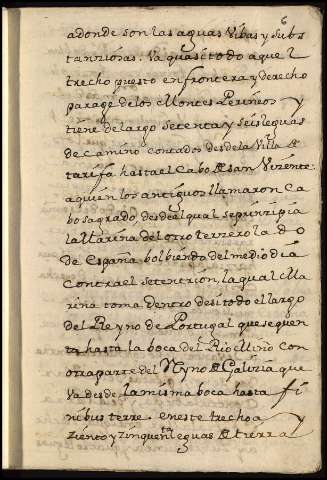 6
adonde son las aguas vibas y subs
tanziosas. va quasi todo aquel
trecho puesto en frontera y derecho
parage de los Montes Perineos y
tiene de largo setenta y seis leguas
de camino contados desde la Villa de
tarifa hasta el Cabo de san Vizente.
a quien los antiguos llamaron Ca
bo sagrado, desde al qual se prinzipia
la Marina del otro terzero lado
de España bolbiendo del medio dia
contra el setentrion, la qual Ma
rina toma dentro de si todo el largo
del Reyno de Portugal que se quen
ta hasta la boca del Rio Miño con
otra parte del Reyno de Galizia que
va desde la misma boca hasta fi
nibus terre. en este trecho a
ziento y zinquenta leguas de tierra